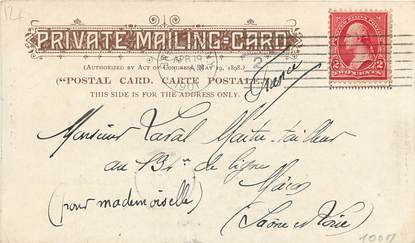 124
PRIVATE MAILING-CARD
(AUTHORIZED BY ACT OF CONGRESS, MAY 19, 1898.)
("POSTAL CARD. CARTE POSTALE.")
THIS SIDE IS FOR THE ADDRESS ONLY.
APR 19
1901
2
2 TWO CENTS 2
France
Monsieur Laval Maître-tailleur
au 134e de ligne
Mâcon
(pour mademoiselle)
(Saône et Loire)